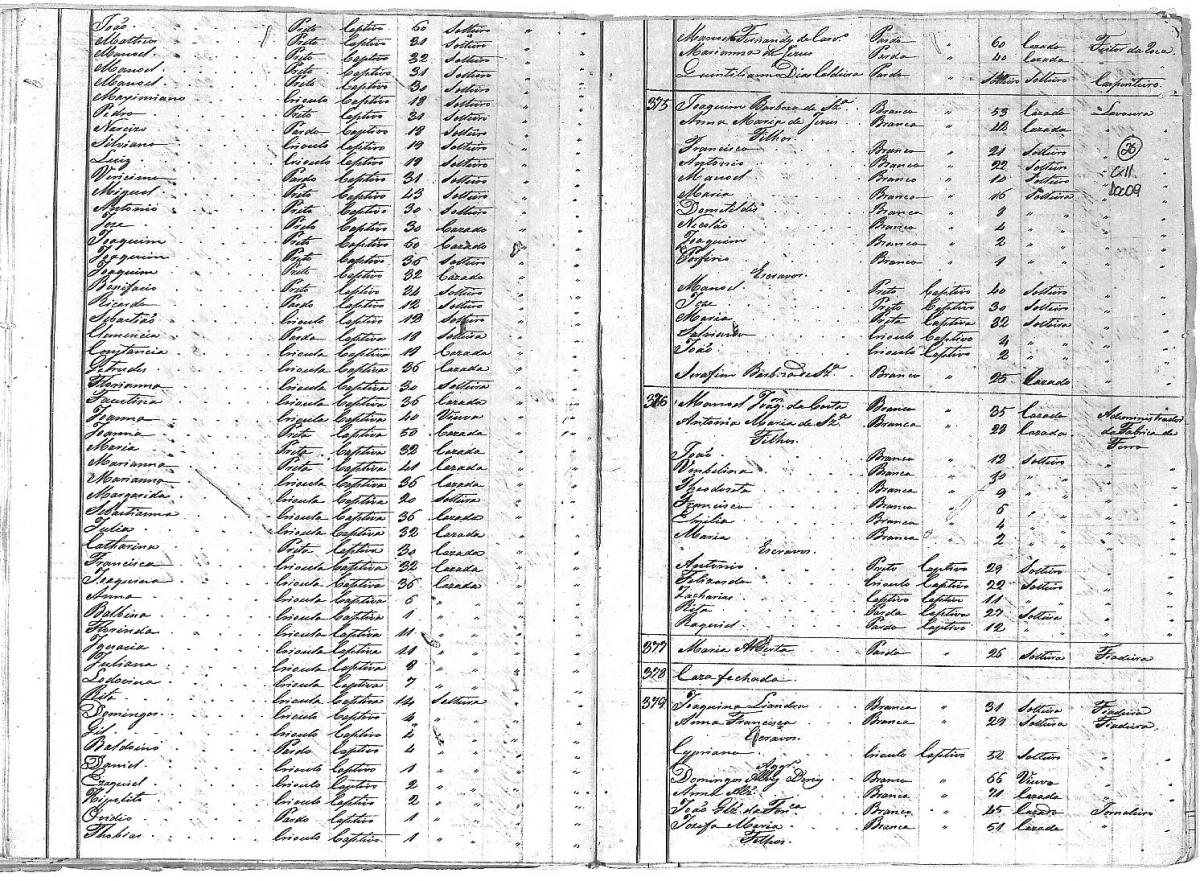 João Preto Captivo 60 Solteiro "
Matheus Preto Captivo 31 Solteiro "
Manoel Preto Captivo 32 Solteiro "
Manoel Preto Captivo 31 Solteiro "
Manoel Preto Captivo 30 Solteiro "
Maximiano Crioulo Captivo 18 Solteiro "
Pedro Preto Captivo 31 Solteiro "
Narcizo Pardo Captivo 18 Solteiro "
Silviano Crioulo Captivo 19 Solteiro "
Luiz Crioulo Captivo 19 Solteiro "
Viriciano Pardo Captivo 31 Solteiro "
Miguel Preto Captivo 43 Solteiro "
Antonio Preto Captivo 30 Solteiro "
Joze Preto Captivo 30 Cazado "
Joaquim Preto Captivo 60 Cazado "
Joaquim Preto Captivo 36 Solteiro "
Joaquim Preto Captivo 32 Cazado "
Bonifacio Preto Captivo 34 Solteiro "
Ricardo Pardo Captivo 12 Solteiro "
Sebastião Crioulo Captivo 12 Solteiro "
Clemencia Parda Captiva 18 Solteira "
Constancia Crioula Captiva 19 Cazada "
Getrudes Crioula Captiva 36 Cazada "
Florianna Crioula Captiva 30 Solteira "
Faustina Crioula Captiva 36 Cazada "
Joanna Crioula Captiva 40 Viuva "
Joanna Preta Captiva 50 Cazada "
Maria Preta Captiva 32 Cazada "
Marianna Preta Captiva 41 Cazada "
Marianna Crioula Captiva 36 Cazada "
Margarida Crioula Captiva 20 Solteira "
Sebastianna Crioula Captiva 36 Cazada "
Julia Crioula Captiva 32 Cazada "
Catharina Preta Captiva 30 Cazada "
Francisca Crioula Captiva 32 Cazada "
Joaquina Crioula Captiva 36 Cazada "
Anna Crioula Captiva 6 " "
Balbina Crioula Captiva 1 " "
Florinda Crioula Captiva 11 " "
Ignacia Crioula Captiva 10 " "
Juliana Crioula Captiva 8 " "
Ludovina Crioula Captiva 7 " "
Rita Crioula Captiva 14 Solteira "
Domingos Crioulo Captivo 4 " "
Gil Crioulo Captivo 4 " "
Baldoino Pardo Captivo 4 " "
Daniel Crioulo Captivo 1 " "
Ezaquiel Crioulo Captivo 2 " "
Hipolito Crioulo Captivo 2 " "
Ovidio Pardo Captivo 1 " "
Thobias Crioulo Captivo 1 " "
Manoel Fernandes de Carv.º Pardo " 60 Cazado Feitor da
Marianna de Jesus Parda " 40 Cazada "
Quintilianno Dias Caldeira Pardo " Solteiro Carpinteiro
375 Joaquim Barboza de Sz.ª Branco " 53 Cazado Lavoura
Anna Maria de Jezus Branca " 42 Cazada "
Filhos
Francisco Branco " 21 Solteiro "
Antonio Branco " 22 Solteiro "
Manoel Branco " 10 Solteiro "
Maria Branca " 16 Solteira "
26
CII
DOC09
Branca " 8 " "
Nicoláo Branco " 4 " "
Joaquim Branco " 2 " "
Porfirio Branco " 1 " "
Escravos
Manoel Preto Captivo 40 Solteiro "
Joze Preto Captivo 30 Solteiro "
Maria Preta Captiva 32 Solteira "
Crioulo Captivo 4 " "
João Crioulo Captivo 2 " "
Serafim Barboza de Sz.ª Branco " 25 Cazado "
376 Manoel Joaq.m da Costa Branco " 35 Cazado Administrador
Antonia Maria de Sz.ª Branca " 28 Cazada da Fabrica de
Filhos Ferro
João Branco " 12 Solteiro "
Umbelina Branca " 10 " "
Branca " 9 " "
Francisco Branco " 6 " "
Emilia Branca " 4 " "
Maria Branca " 2 " "
Escravos
Antonio Preto Captivo 29 Solteiro "
Felizardo Crioulo Captivo 22 Solteiro "
Zacharias Captivo Captivo 11 " "
Rita Parda Captiva 27 Solteira "
Raquiel Pardo Captivo 12 " "
377 Maria Alberta Parda " 26 Solteira Fiadeira
378 Caza fechada
379 Joaquina Liandra Branca " 31 Solteira Fiadeira
Anna Francisca Branca " 29 Solteira Fiadeira
Escravos
Cypriano Crioulo Captivo 52 Solteiro "
Aggr.
Domingos Branco " 66 Viuvo "
Anna Branca " 71 Cazada "
João da Fon.ca Branco " 45 Cazado Torneiro
Jozefa Maria Branca " 51 Cazada "
Filhos